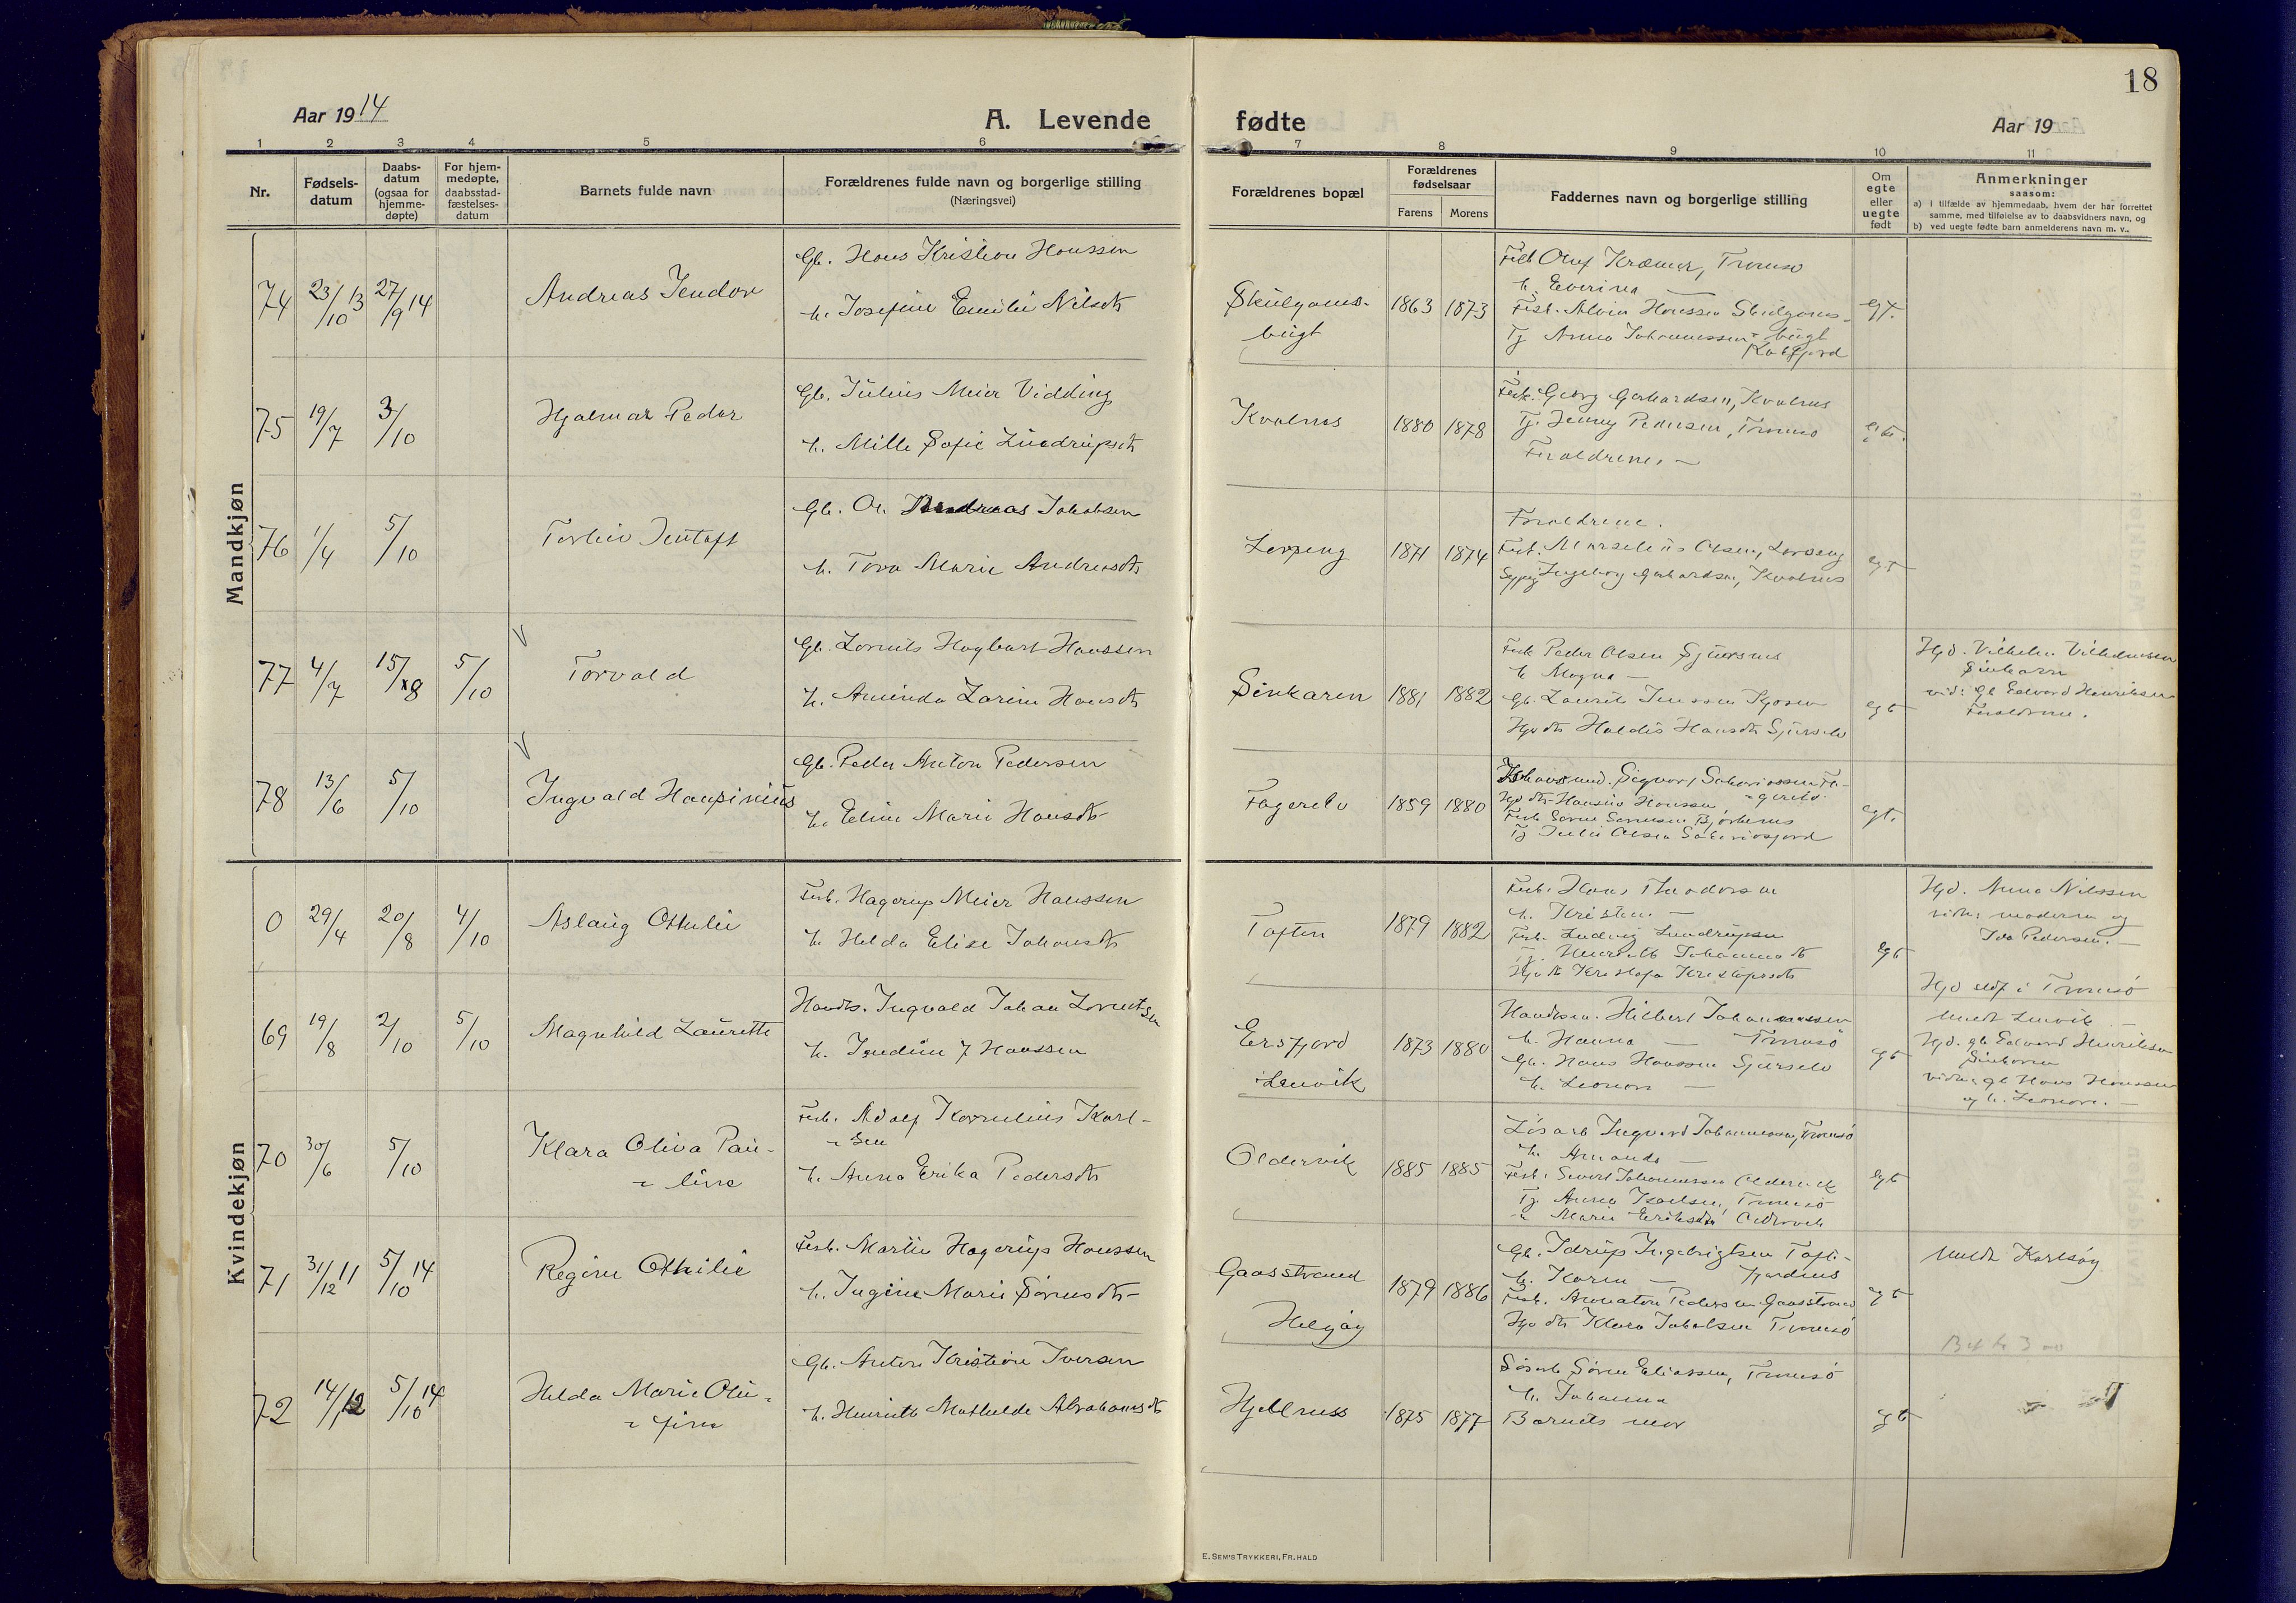 18
Aar 1914
A. Levende
fødte
Aar 19
1 2 3 4 5 6 7 8 9 10 11
Nr.
Fødsels-
datum
Daabs-
datum
(ogsaa for
hjemme-
døpte)
For hjem-
medøpte,
daabsstad-
fæstelses-
datum
Barnets fulde navn
Forældrenes fulde navn og borgerlige stilling
(Næringsvei)
Forældrenes bopæl
Forældrenes
fødselsaar
Farens Morens
Faddernes navn og borgerlige stilling
Om
egte
eller
uegte
født
Anmerkninger
saasom:
a) i tilfælde av hjemmedaab, hvem der har forrettet
samme, med tilføielse av to daabsvidners navn, og
b) ved uegte fødte barn anmelderens navn m. v..
Mandkjøn
74 23/10 13 27/9 14
Andreas Jendor
Gb. Hans Kristian Hanssen
h. Josefine Emilie Nilsdt
Skulgams-
bugt
1863 1873
Olaf Kræmer, Tromsø
h. Everina —
Fisb. Alvin Hanssen Skulgams-
bugt
Tj Anna Johannessen
Kalfjord
egt.
75 19/7 3/10
Hjalmar Peder
Gb. Julius Meier Vidding
h. Mille Sofie Lindrupsdt
Kvalnes
1880 1878
Fisk. Georg Gerhardsen, Kvalnes
Tj. Jenny Pedersen, Tromsø
Forældrene. —
egt.
76 1/4 5/10
Torleiv Jentoft
Gb. Ol. Andreas Jakobsen
h. Tora Marie Andreasdt
Larseng
1871 1874
Forældrene.
Fisb. Marselius Olsen, Larseng
Sypig Ingeborg Gerhardsen, Kvalnes
egt
77 4/7 15/8 5/10
Torvald
Gb. Lornits Hagbart Hanssen
h. Aminda Larine Hansdt
Sinkaren
1881 1882
Fisk Peder Olsen Sjursnes
h Magna —
Gb. Laurits Jenssen Kjosen
Hjv dt Haldis Hansdt Sjurselv
egt
Hjd. Vilhelm Vilhelmsen
Sinkaren
vid: gb Edvard Henriksen
Forældrene.
78 13/6 5/10
Ingvald Hansinius
Gb. Peder Anton Pedersen
h. Eline Marie Hansdt
Fagerelv
1859 1880
Sigvart Sakariassen Fa-
gerelv.
Hjv dt Hansine Hanssen
Tj Julie Olsen Sakariasjord
egt.
Kvindekjøn
0 29/4 20/8 4/10
Aslaug Othilie
Fisb. Hagerup Meier Hanssen
h Helda Elise Johansdt
Toften
1879 1882
Fisb. Hans Thodorsen
h. Kristine —
Fisb. Ludvig Lundrupsen
Tj. Henriette Johannesdt
egt
Hjd. Anna Nilssen
vidn: moderen og
Ida Pedersen. —
69 19/8 2/10 5/10
Magnhild Laurette
Handls. Ingvald Johan Lorentsen
h. Jendine J Hanssen
Ersfjord
Lenvik
1873 1880
Handlsm. Hilbert Johannessen
h. Hanna — Tromsø
Gb. Hans Hanssen Sjurselv
h. Leonore —
egt
Hjd seds i Tromsø
Meldt Lenvik —
Hjd. gb Edvard Henriksen
Sinkaren
vidn: gb Hans Hanssen
og h. Leonore. —
70 30/6 5/10
Klara Oliva Pau-
line
Fisb. Adolf Kornelius Karl-
sen
h. Anna Erika Pedersdt
Oldervik
1885 1885
Løsarb Ingvard Johannessen, Tromsø
h. Amanda —
Fisb. Sivert Johannessen Oldervik
Tj. Anna Karlsen, Tromsø
Marie Eriksdt Oldervik
egt
71 31/12 11 5/10 14
Regine Othilie
Fisb. Martin Hagerup Hanssen
h. Ingine Marie Sørensdt
Gaasstrand
Helgøy
1879 1886
Gb. Idrup Ingebrigtsen Toft-
h. Karen —
Fisb. Annaton Pedersen Gaasstrand
Hjv dt Klara Jakobsen Tromsø
egt
Meldt Karlsøy
72 14/12 5/10 14
Helda Marie Oli-
fine
Gb. Anton Kristian Iversen
h. Henriette Mathilde Abrahamsdt
Hjellness
1875 1877
Løsarb Søren Eliassen, Tromsø
h. Johanna
Barnets mor
egt
E. SEM'S TRYKKERI, FR. HALD